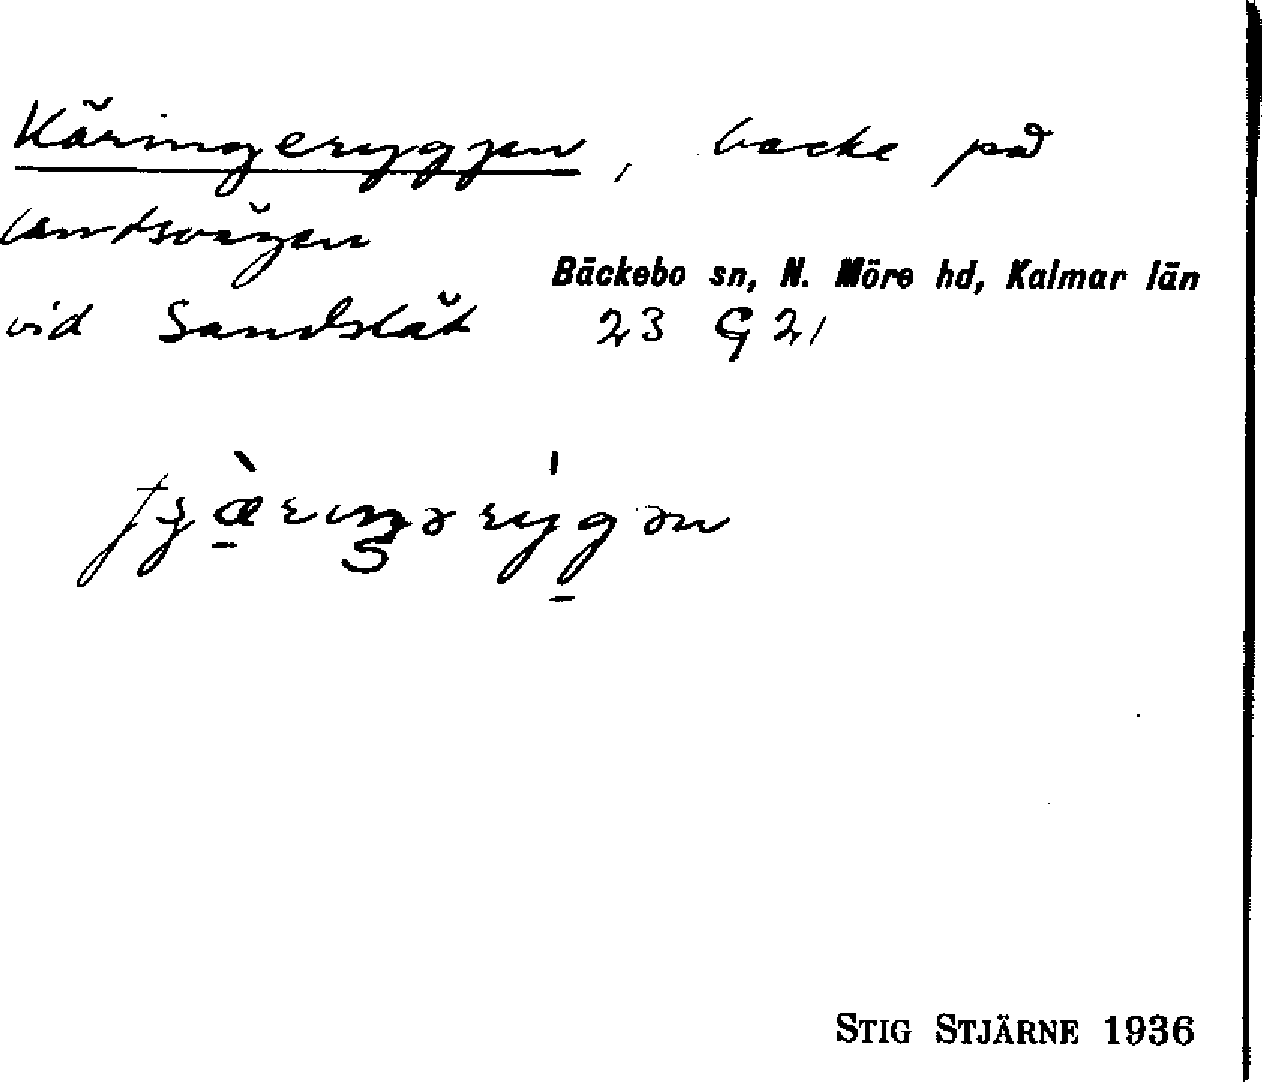 Käringeryggen, backe på
landsvägen
Bäckebo sn, N. Möre hd, Kalmar län
vid Sandslätt 23 G 21
STIG STJÄRNE 1936